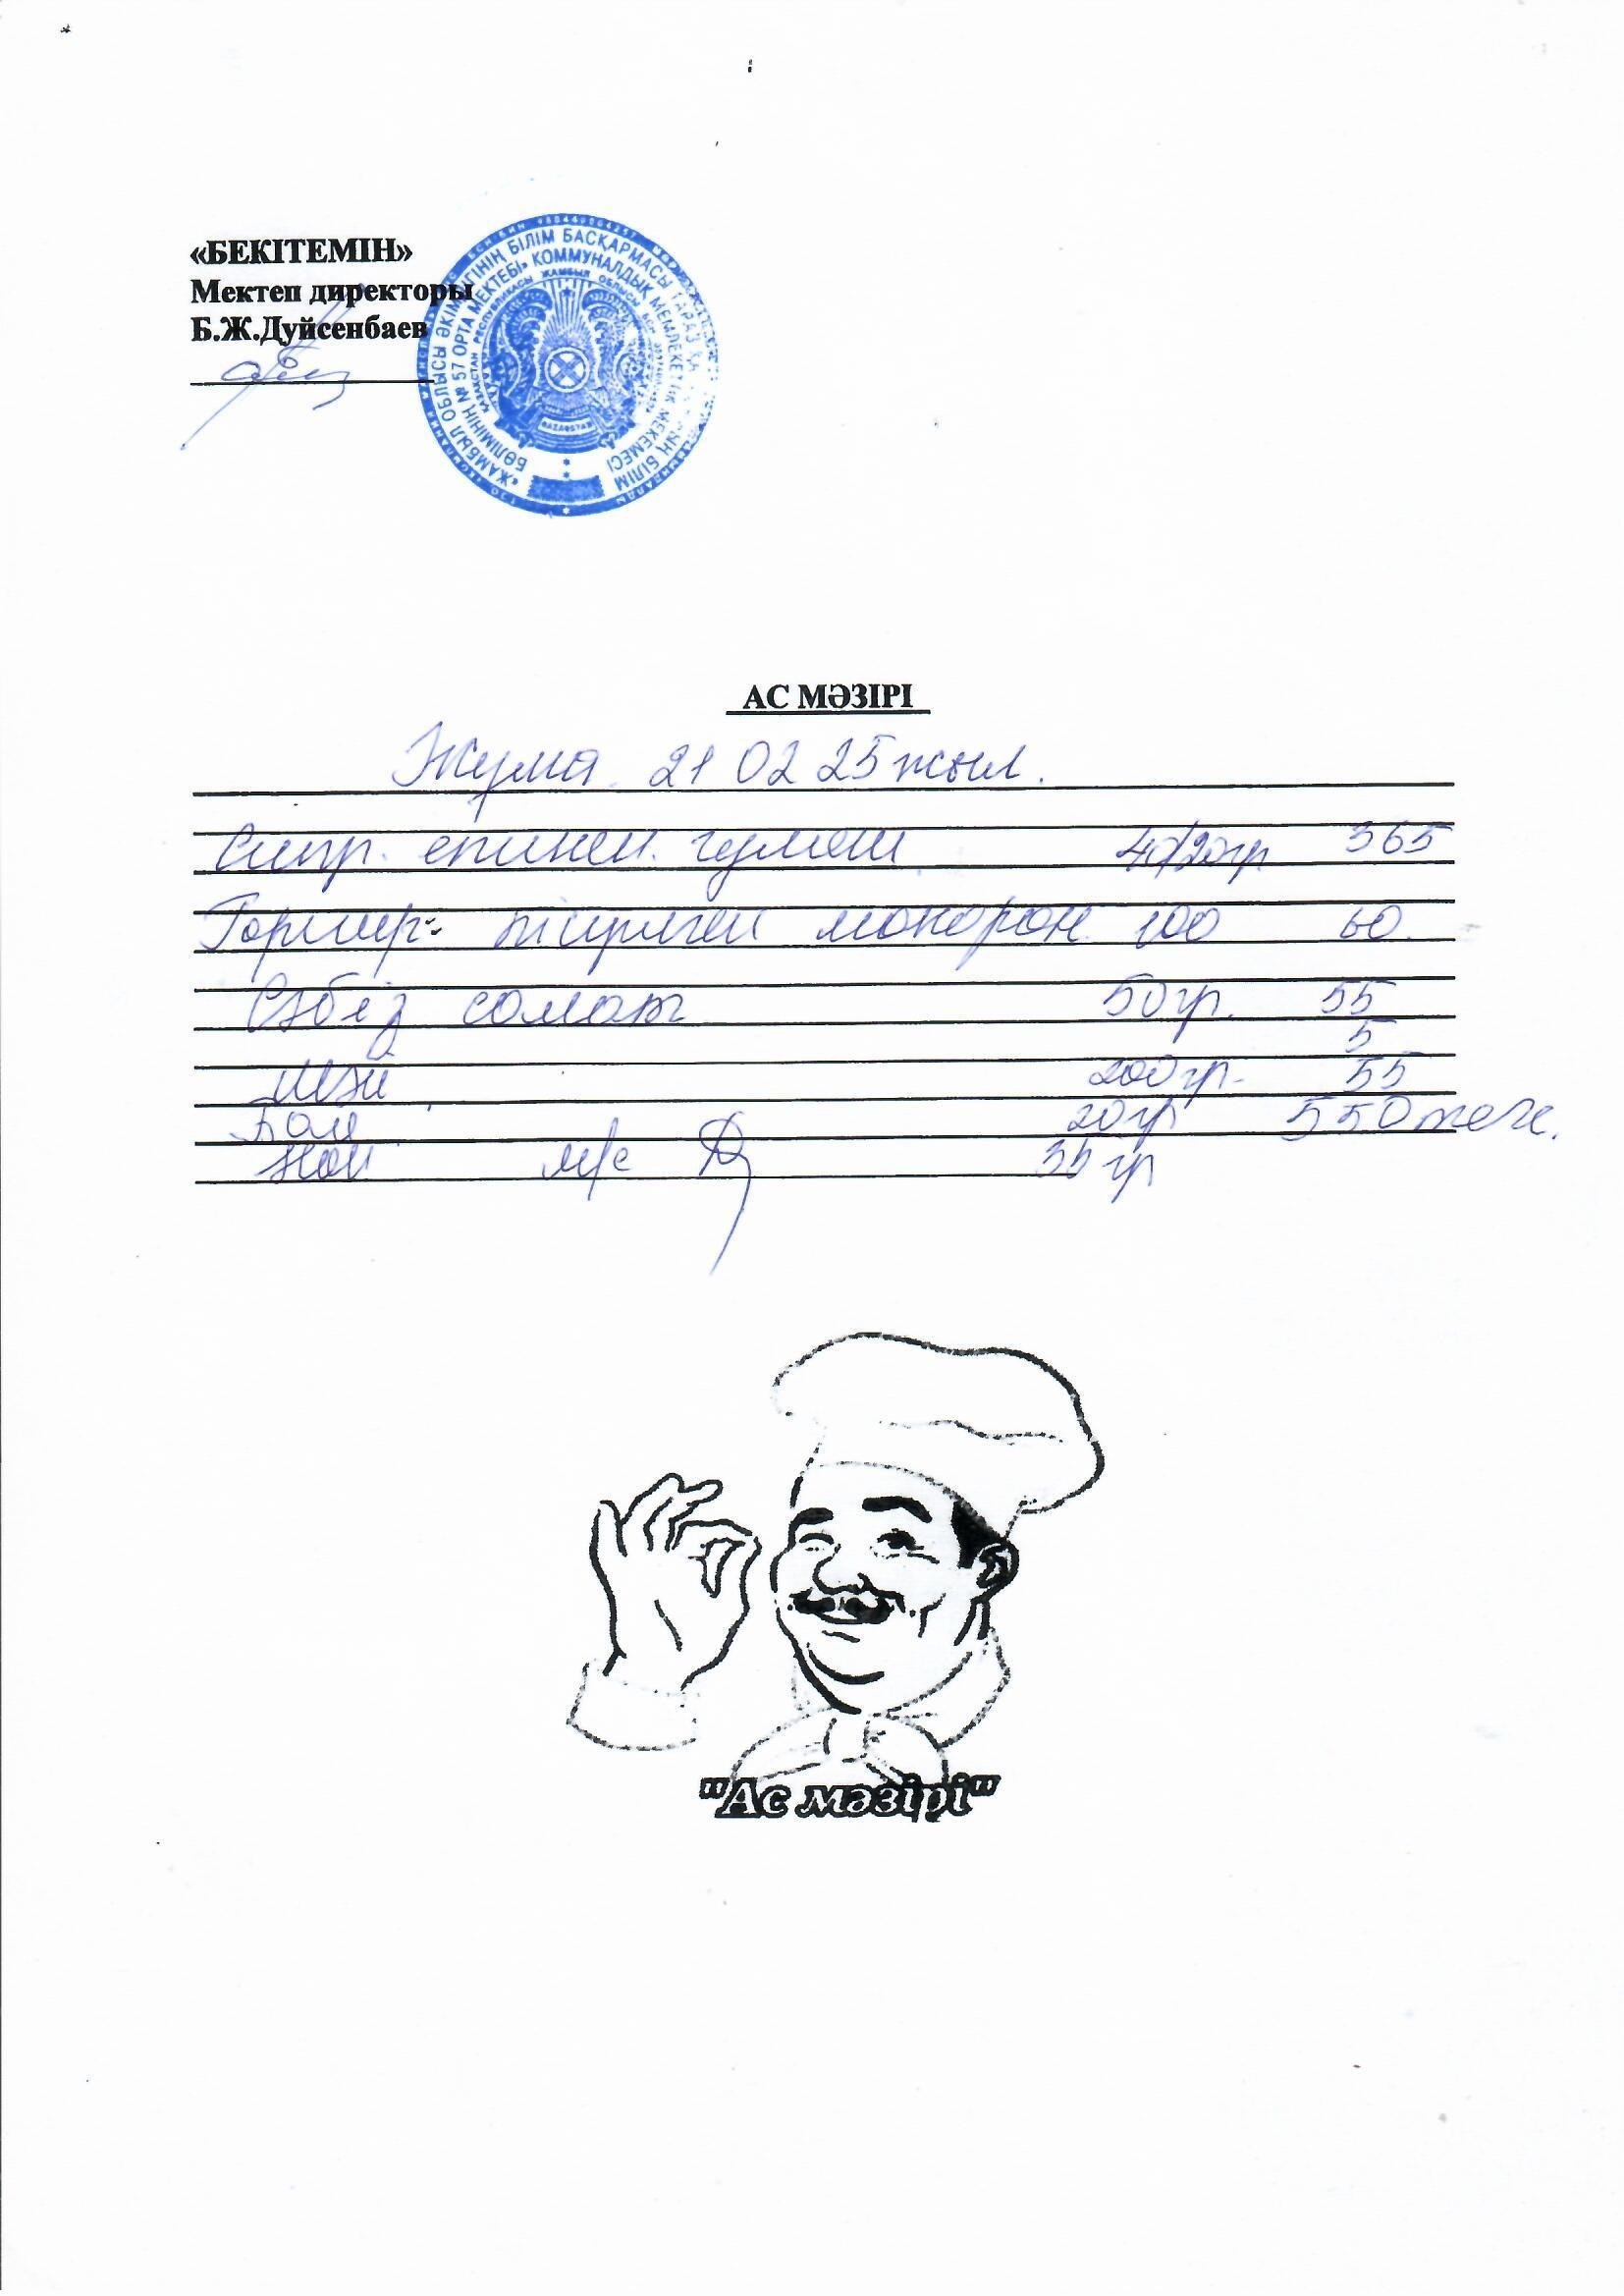 «БЕКІТЕМІН»
Мектеп директоры
Б.Ж.Дуйсенбаев
«ЖАМБЫЛ ОБЛЫСЫ ӘКІМДІГІНІҢ БІЛІМ БАСҚАРМАСЫ ТАРАЗ ҚАЛАСЫНЫҢ БІЛІМ
БӨЛІМІНІҢ № 57 ОРТА МЕКТЕБІ» КОММУНАЛДЫҚ МЕМЛЕКЕТТІК МЕКЕМЕСІ
ҚАЗАҚСТАН РЕСПУБЛИКАСЫ ЖАМБЫЛ ОБЛЫСЫ
АС МӘЗІРІ
Жума 21 02 25 жыл.
Сиыр етинен гуляш 40/20гр 365
Гарнир: пісірілген макарон 100 60
Сәбіз салат 50гр. 55
5
Шәй 200гр- 55
20гр 550 теңге.
Нан м/с 35 гр
"Ас мәзірі"